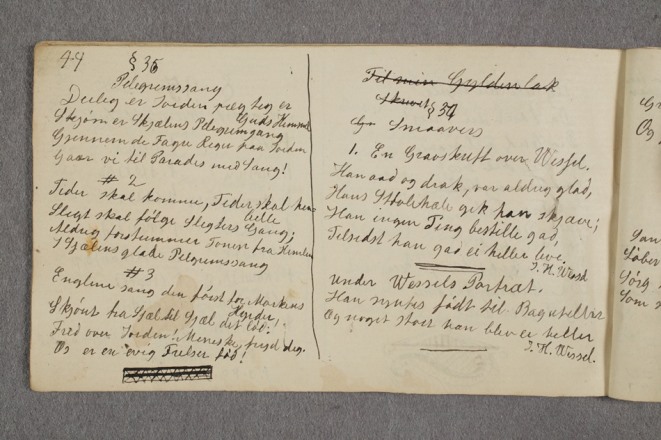 44 § 36
Pelegremssang
Deilig er Jorden prægtig er
Guds Himmel
Skjøn er Skjælens Pelegremgang
Gjennem de Fagre Riger paa Jorden
Gaar vi til Paradis med Sang!
# 2
Tider skal komme, Tider skal hen-
belle
Slegt skal følge Slegters Gang;
Aldrig forstummer Tonen fra Himlen
I Sjælens glade Pelgremssang
# 3
Englene sang den først for Markens
Hyrder;
Skjønt fra Sjæl til Sjæl det lød:
Fred over Jorden! Menneske fryd dig.
Os er en evig Frelser fød!
Til min Gyldenlak
§ 37
Smaavers
1. En Gravskrift over Wessel.
Han aad og drak, var aldrig glad,
Hans Støvlehæle gik han skjæve;
Han ingen Ting bestille gad,
Tilsidst han gad ei heller leve.
J. H. Wessel
Under Wessels Portræt.
Han syntes født til Bagateller
Og noget stort han blev ei heller
J. H. Wessel.